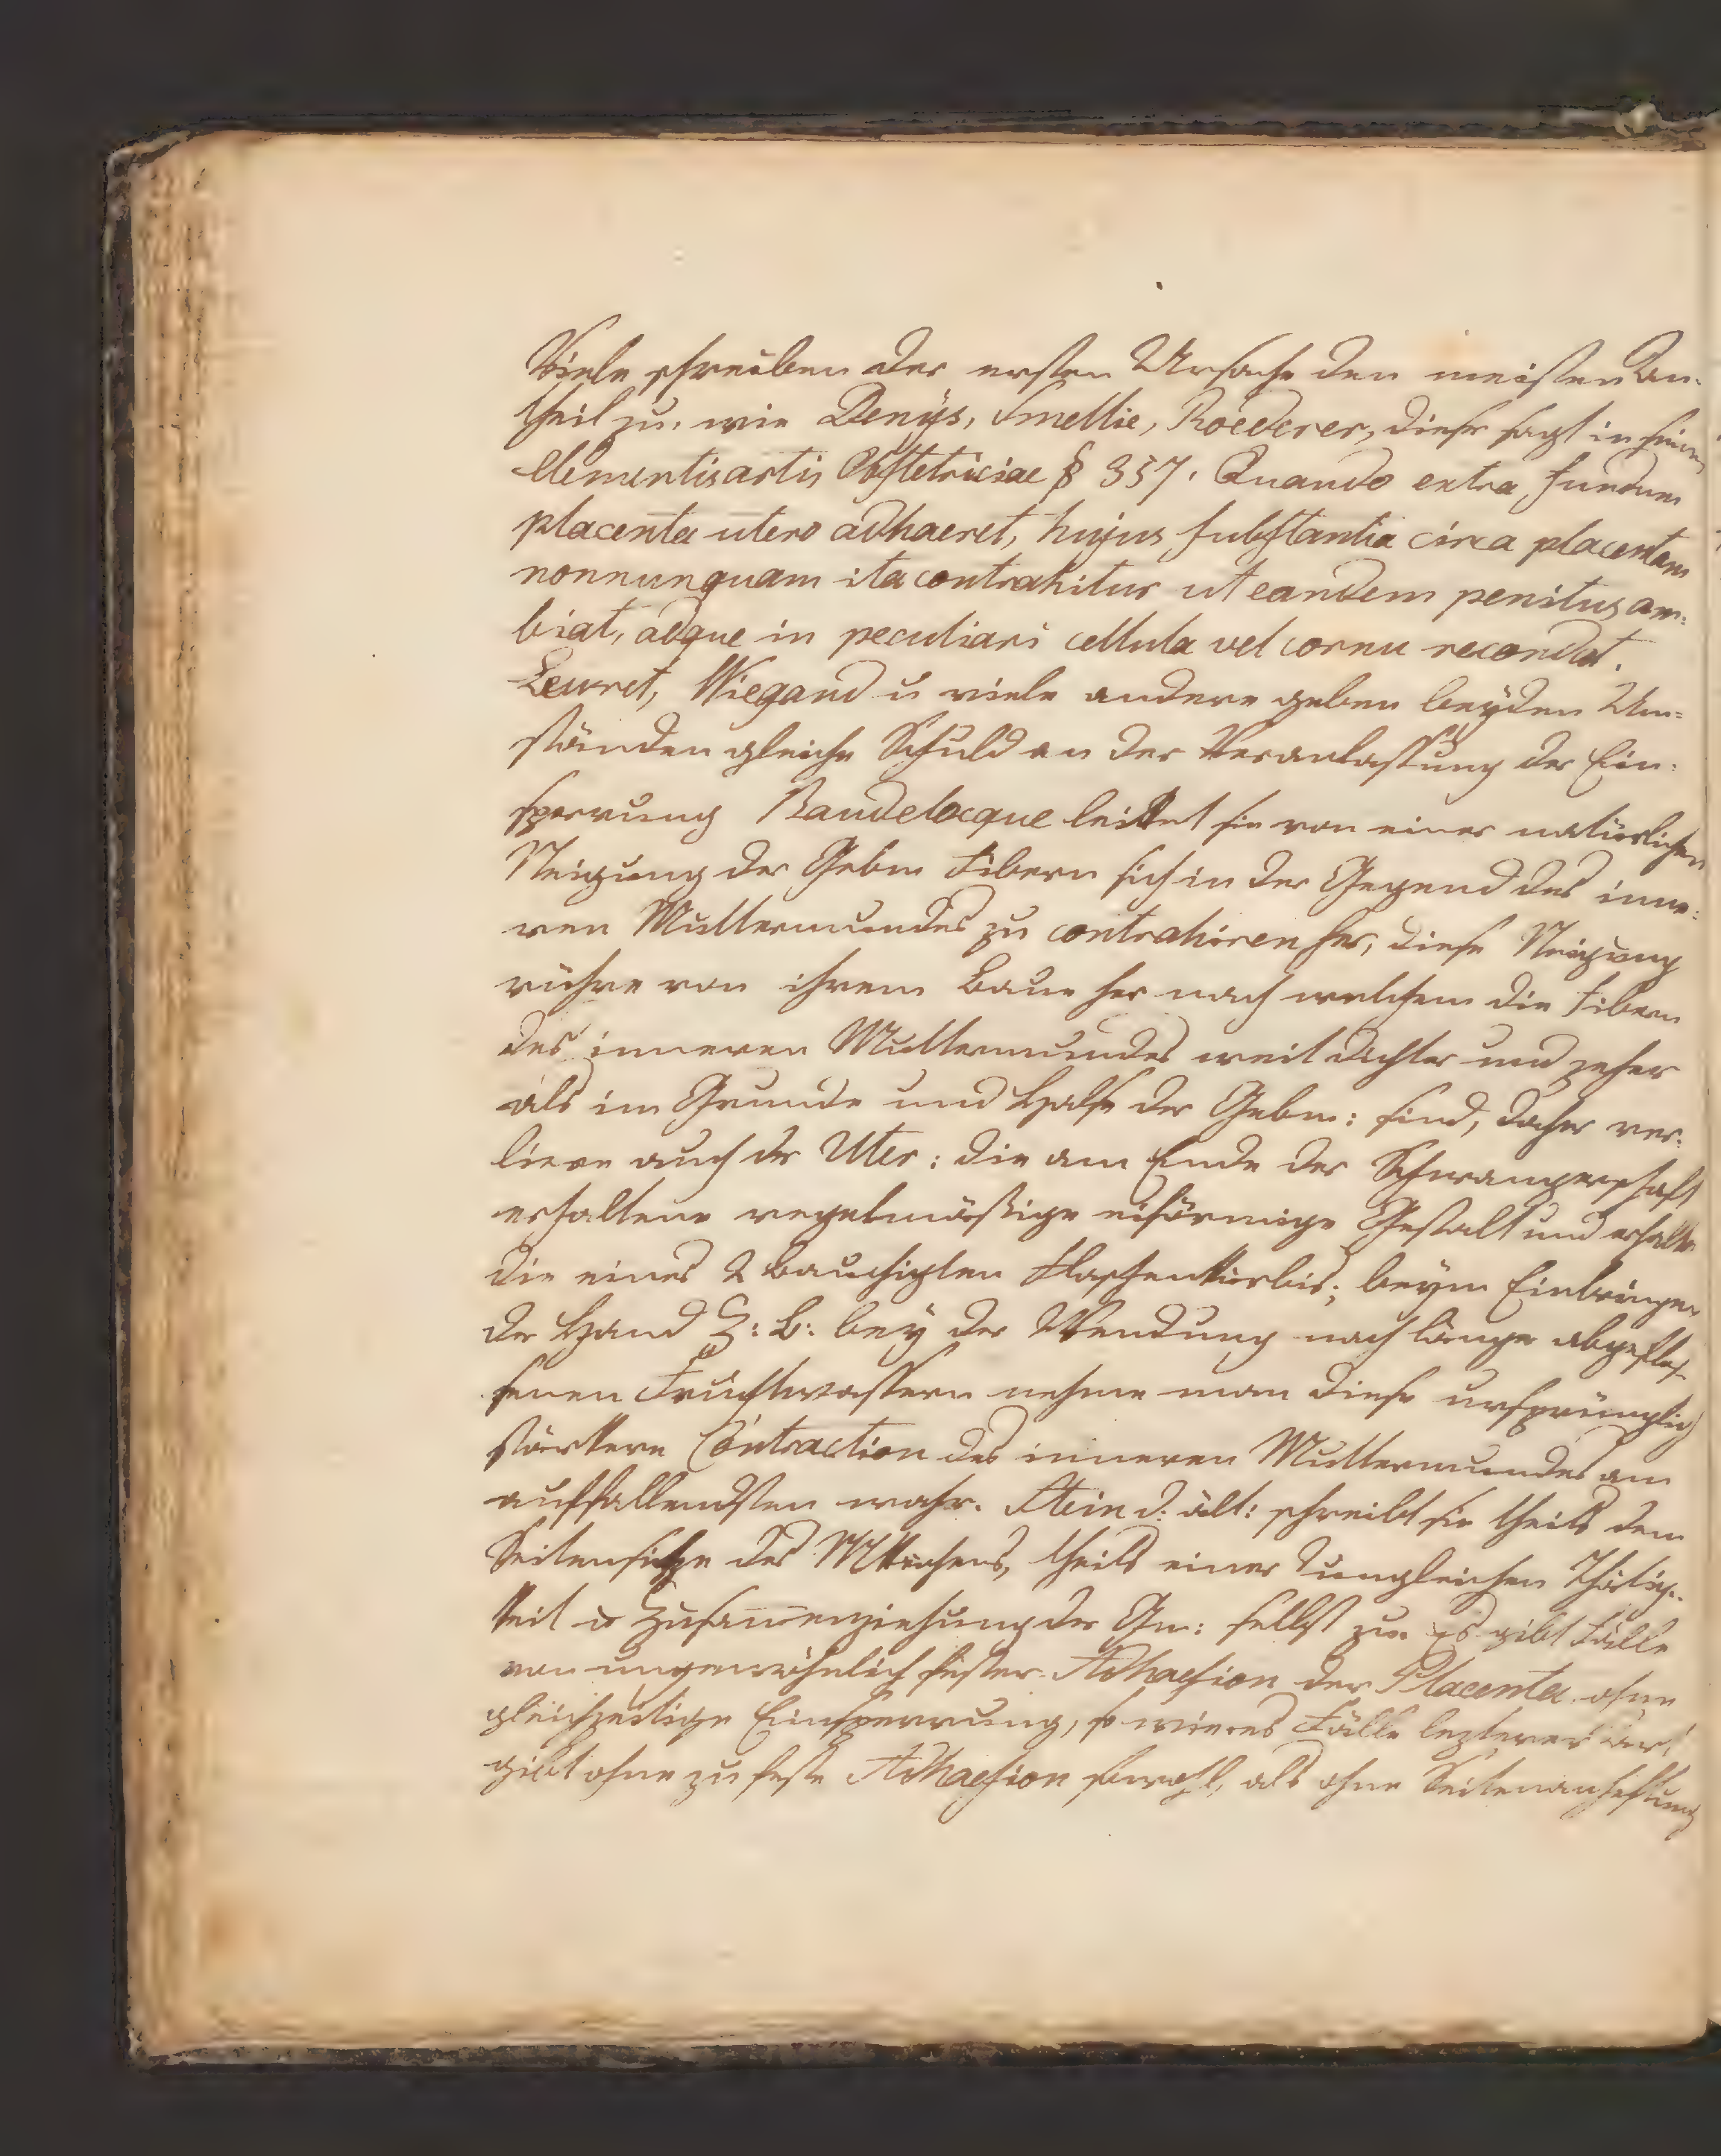 Viele schreiben der ersten Ursache den meisten An-
theil zu, wie Denÿs, Smellie, Roederer, dieser sagt in seinen
Elementis artis Obstetriciae § 357. Quando extra fundum
placenta utero adhaeret, hujus substantia circa placentam
nonnunquam ita contrahitur ut eandem penitus am-
biat, adque in peculiari cellula vel cornu recondat.
Levret, Wiegand u viele andere geben beÿden Um=
ständen gleiche Schuld an der Veranlassung der Ein-
sperrung Baudelocque leitet sie von einer natürlichen
Neigung der Gebm Fibern sich in der Gegend des inne=
ren Muttermundes zu contrahiren her, diese Neigung
rühre von ihrem Baue her nach welchem die Fibern
des inneren Muttermundes weit dichter und zeher
als im Grunde und Halse der Gebm: sind, daher ver-
liere auch der Uter: die am Ende der Schwangerschaft
erhaltene regelmäßige eiförmige Gestalt und erhalte
die eines 2 bauchigten Flaschenkürbis; beÿm Einbringen
der Hand Z: B: beÿ der Wendung nach länger abgeflos-
senen Fruchtwassern nehme man diese ursprünglich
stärkere Contraction des inneren Muttermundes am
auffallendsten wahr. Stein d: ält: schreibt sie theils dem
Seitensitze des Mkuchens, theils einer ungleichen Thätig-
keit u Zusam̄enziehung der Gm: selbst zu. Es gibt Fälle
von ungewöhnlich fester Adhaesion der Placenta ohne
gleichzeitige Einsperrung, so wie es Fälle lezterer Art
gibt ohne zu feste Adhaesion sowohl, als ohne Seitenanheftung